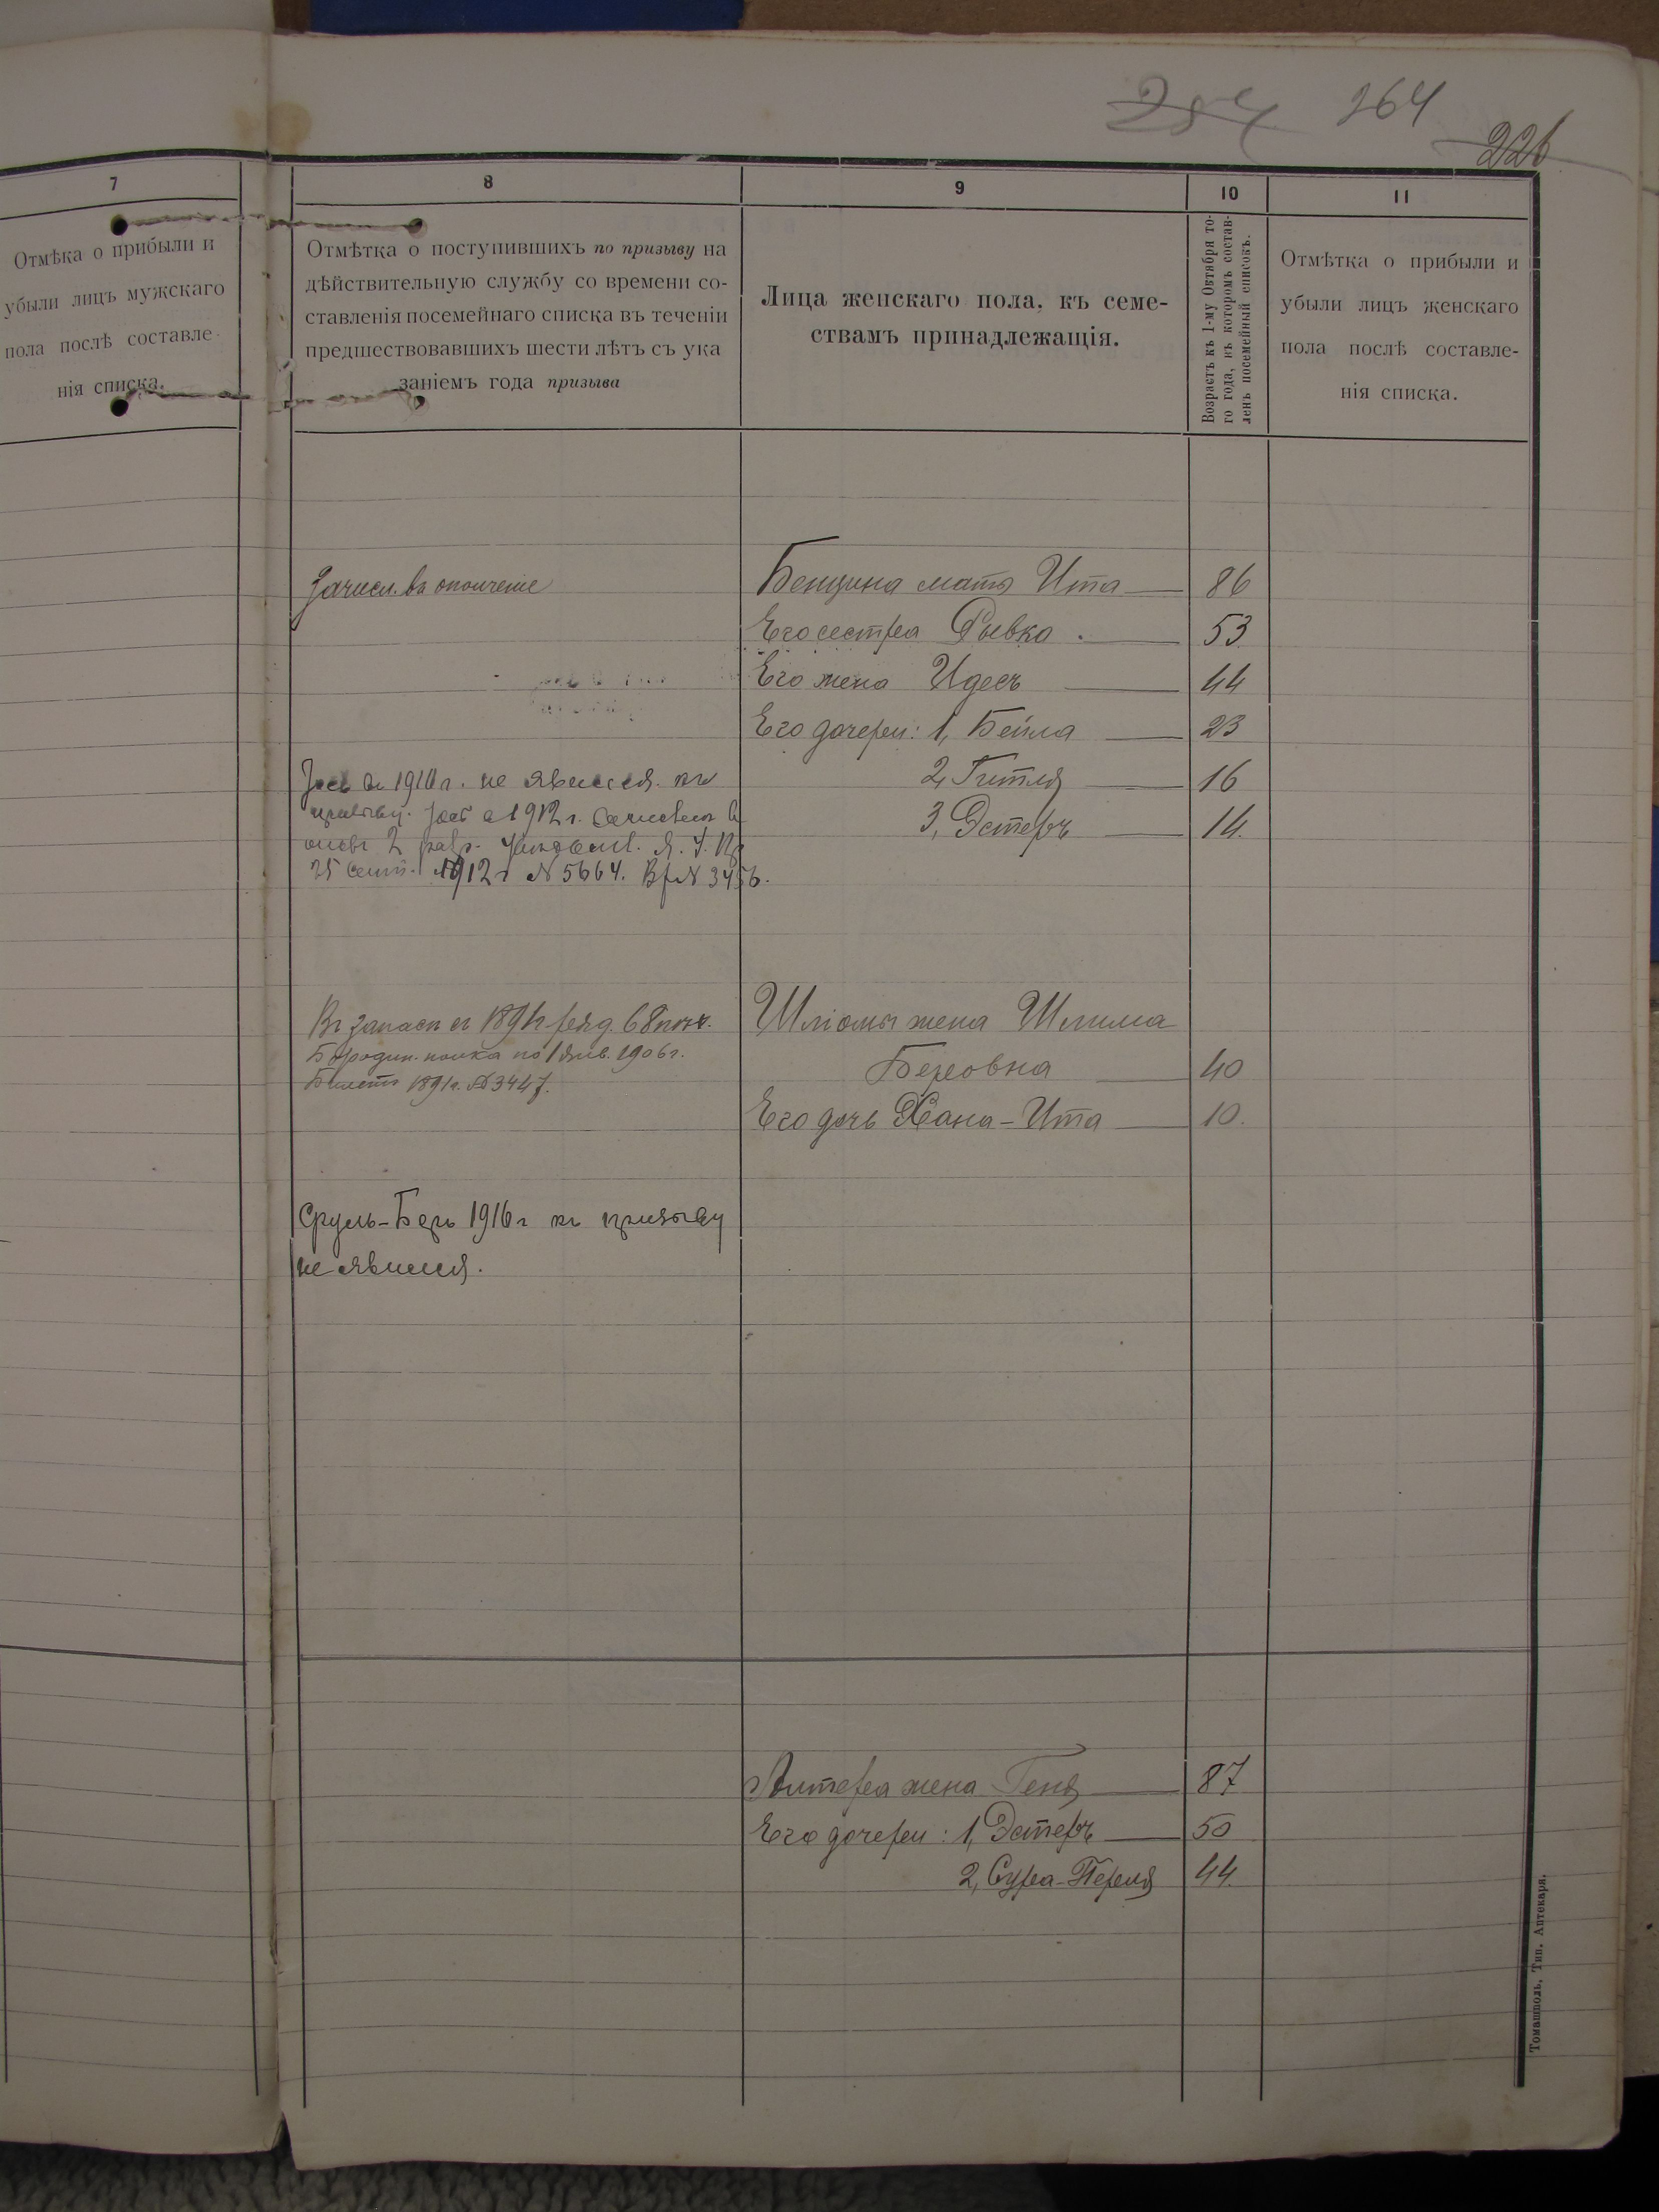 284 264
226
7
Отмѣка о прибыли и
убыли лицъ мужскаго
пола послѣ составле-
нія списка.
8
Отмѣтка о поступившихъ по призыву на
дѣйствительную службу со времени со-
ставленія посемейнаго списка въ теченіи
предшествовавшихъ шести лѣтъ съ ука
заніемъ года призыва
9
Лица женскаго пола, къ семе-
ствамъ принадлежащія.
10
Возрастъ къ 1-му Октября то-
го года, въ которомъ состав-
ленъ посемейный списокъ.
11
Отмѣтка о прибыли и
убыли лицъ женскаго
пола послѣ составле-
нія списка.
Зачисл. въ ополченіе
Бенциона мать Ита 86
Его сестра Рывка 53
Его жена Идесъ 44
Его дочери: 1, Бейла 23
2, Гитля 16
3, Эстеръ 14.
1910 г. не явился къ
призыву. 1912 г.
2 разр.
25 Сент. 1912 г № 5664. № 3456.
Въ запасъ съ 1891 г ряд. 68 пѣх.
Бородин. полка по 1 Янв. 1906 г.
Билетъ 1891 г. № 3447.
Шліомы жена Шлима
Беровна 40
Его дочь Хана-Ита 10.
Сруль-Беръ 1916 г къ призыву
не явился.
Антера жена Геня 87
Его дочери: 1, Эстеръ 50
2, Сура-Перля 44.
Томашполь, Тип. Аптекаря.